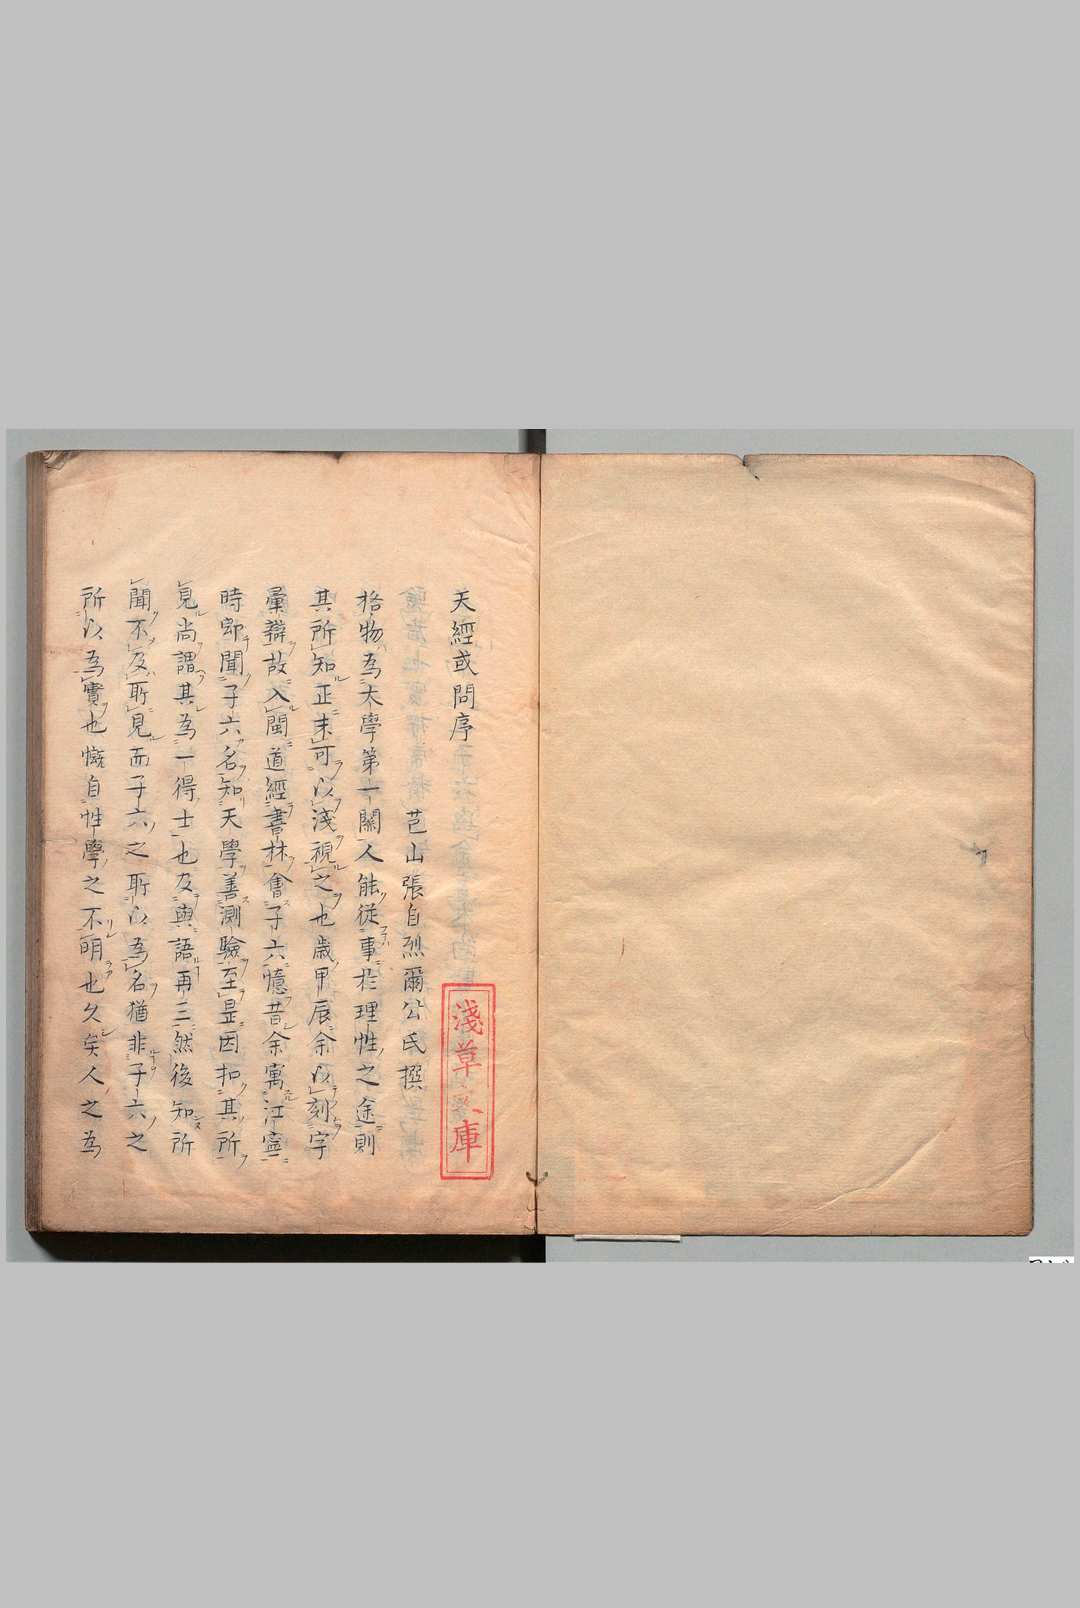 天經或問序
芑山張自烈爾公氏撰
格物為大學第一關人能從事於理性之途則
其所知正未可以淺視之也歲甲辰余以刻字
彙辯故入閩道經書林會子六憶昔余寓江寧
時卽聞子六名知天學善測驗至是因扣其所
見尚謂其為一得士也及與語再三然後知所
聞不及所見而子六之所以為名猶非子六之
所以為實也慨自性學之不明也久矣人之為
淺草文庫